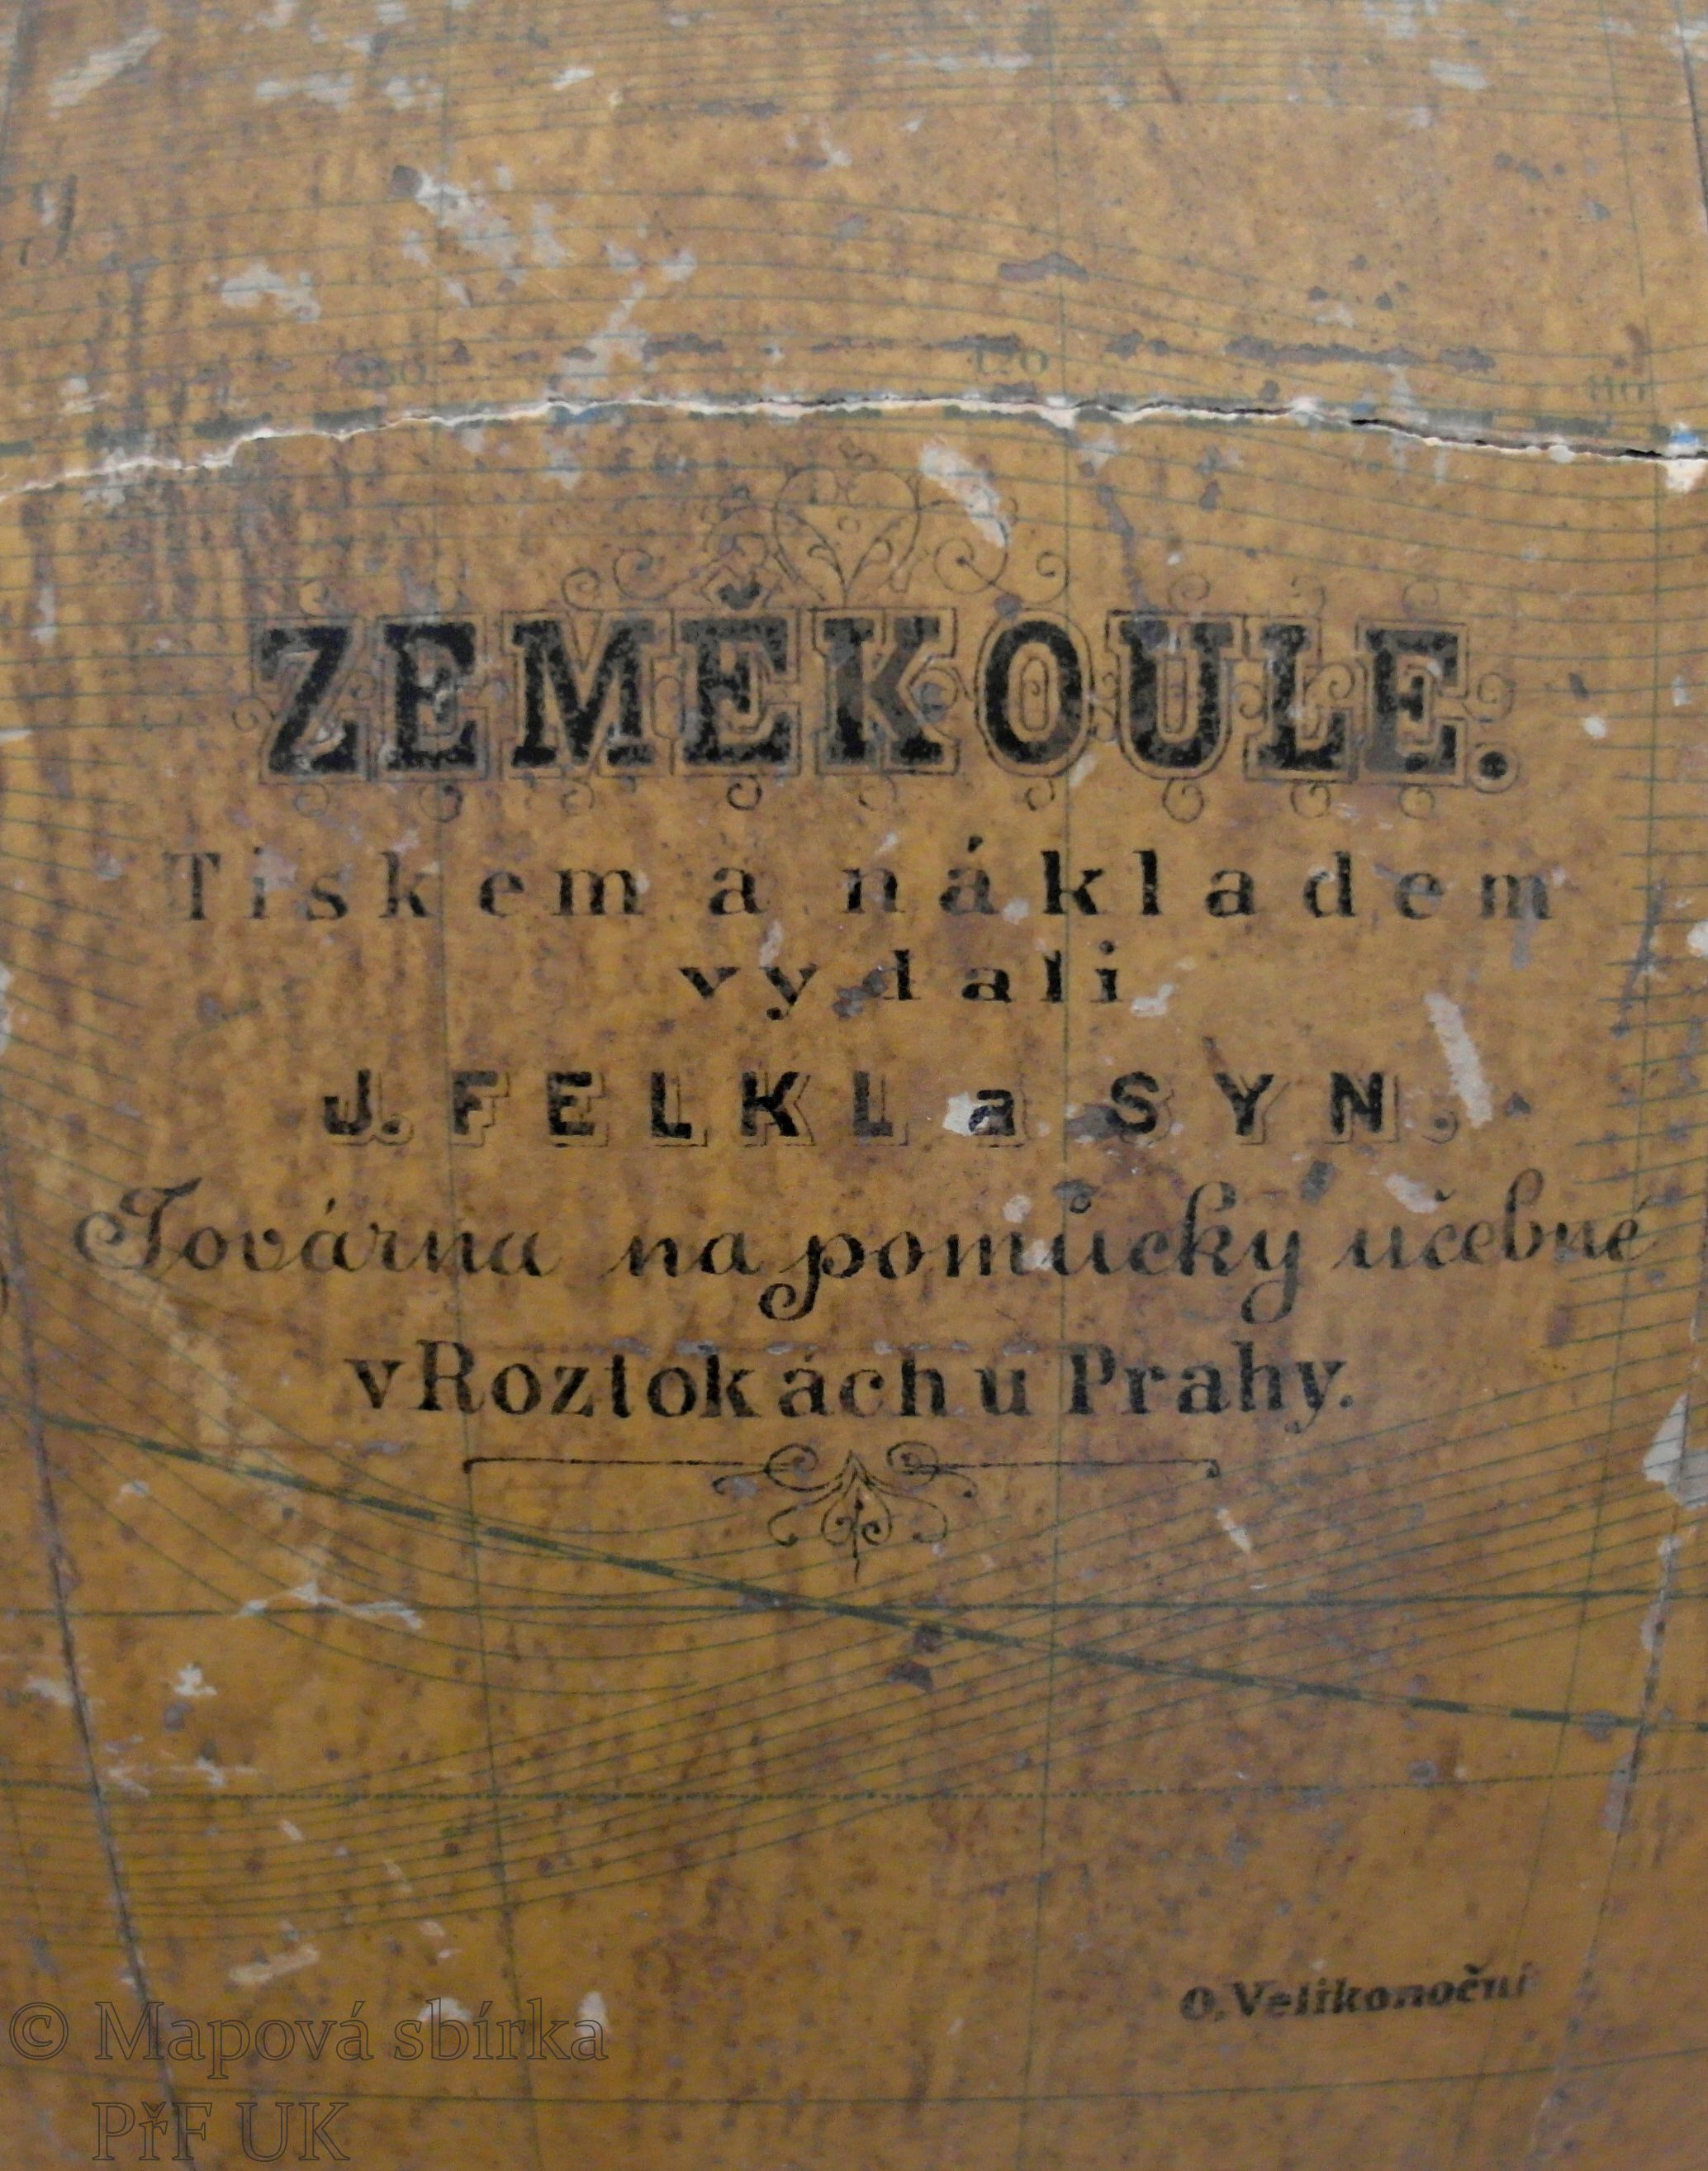 120
110
ZEMĚKOULE.
Tiskem a nákladem
vydali
J. FELKL a SYN.
Továrna na pomůcky učebné
v Roztokách u Prahy.
O. Velikonoční
© Mapová sbírka
PřF UK